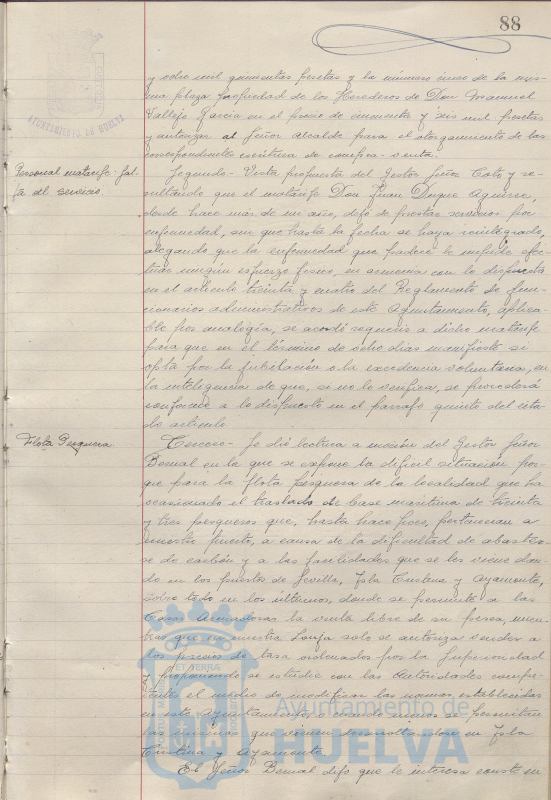 88
AYUNTAMIENTO DE HUELVA
y ocho mil quinientas pesetas y la número cinco de la mis-
ma plaza propiedad de los Herederos de Don Manuel
Vallejo García en el precio de cincuenta y seis mil pesetas
y autorizar al Señor Alcalde para el otorgamiento de las
correspondientes escrituras de compra-venta.
Personal matarife. Fal-
ta al servicio.
Segundo- Vista propuesta del Gestor Señor Coto y re-
sultando que el matarife Don Juan Duque Aguirre,
desde hace más de un año, dejó de prestar servicios por
enfermedad, sin que hasta la fecha se haya reintegrado,
alegando que la enfermedad que padece le impide efec-
tuar ningún esfuerzo físico, en armonía con lo dispuesto
en el artículo treinta y cuatro del Reglamento de fun-
cionarios administrativos de este Ayuntamiento, aplica-
ble por analogía, se acordó requerir a dicho matarife
para que en el término de ocho días manifieste si
opta por la jubilación o la excedencia voluntaria, en
la inteligencia de que, si no lo verifica, se procederá
conforme a lo dispuesto en el párrafo quinto del cita-
do artículo.
Flota Pesquera
Tercero- Se dió lectura a moción del Gestor Señor
Bernal en la que se expone la difícil situación por-
que pasa la flota pesquera de la localidad que ha
ocasionado el traslado de base marítima de treinta
y tres pesqueros que, hasta hace poco, pertenecían a
nuestro puerto, a causa de la dificultad de abastecer-
se de carbón y a las facilidades que se les viene dan-
do en los puertos de Sevilla, Isla Cristina y Ayamonte,
sobre todo en los últimos, donde se permite a las
Casas Armadoras la venta libre de su pesca, mien-
tras que en nuestra Lonja solo se autoriza vender a
los precios de tasa ordenados por la Superioridad
y proponiendo se estudie con las Autoridades compe-
tentes el medio de modificar las normas establecidas
en este Ayuntamiento, o cuando menos se permitan
las mismas que vienen desarrollándose en Isla
Cristina y Ayamonte.
El Señor Bernal dijo que le interesa conste en
Ayuntamiento de
HUELVA